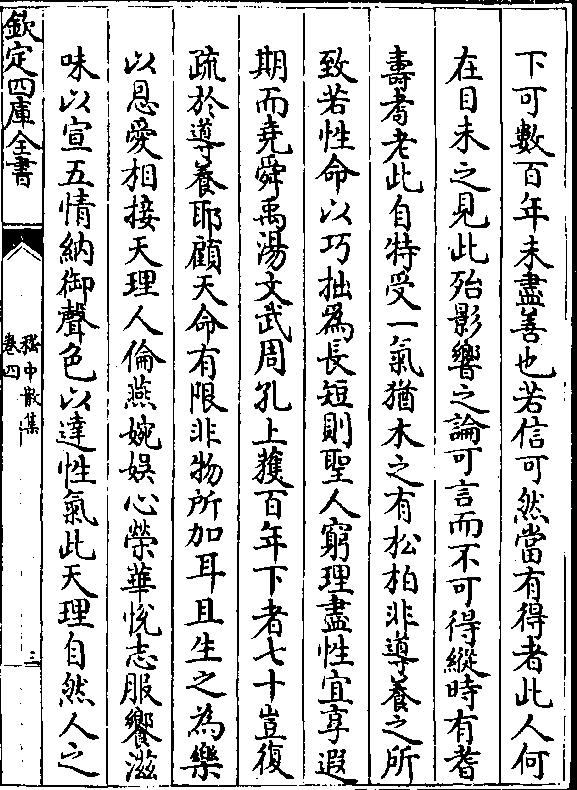 下可數百年未盡善也若信可然當有得者此人何
在目未之見此殆影響之論可言而不可得縱時有耆
壽耇老此自特受一氣猶木之有松柏非導養之所
致若性命以巧拙為長短則聖人窮理盡性宜享遐
期而堯舜禹湯文武周孔上獲百年下者七十豈復
疏於導養耶顧天命有限非物所加耳且生之為樂
以恩愛相接天理人倫燕婉娛心榮華悅志服饗滋
味以宣五情納御聲色以達性氣此天理自然人之
欽定四庫全書
嵇中散集
卷四
三